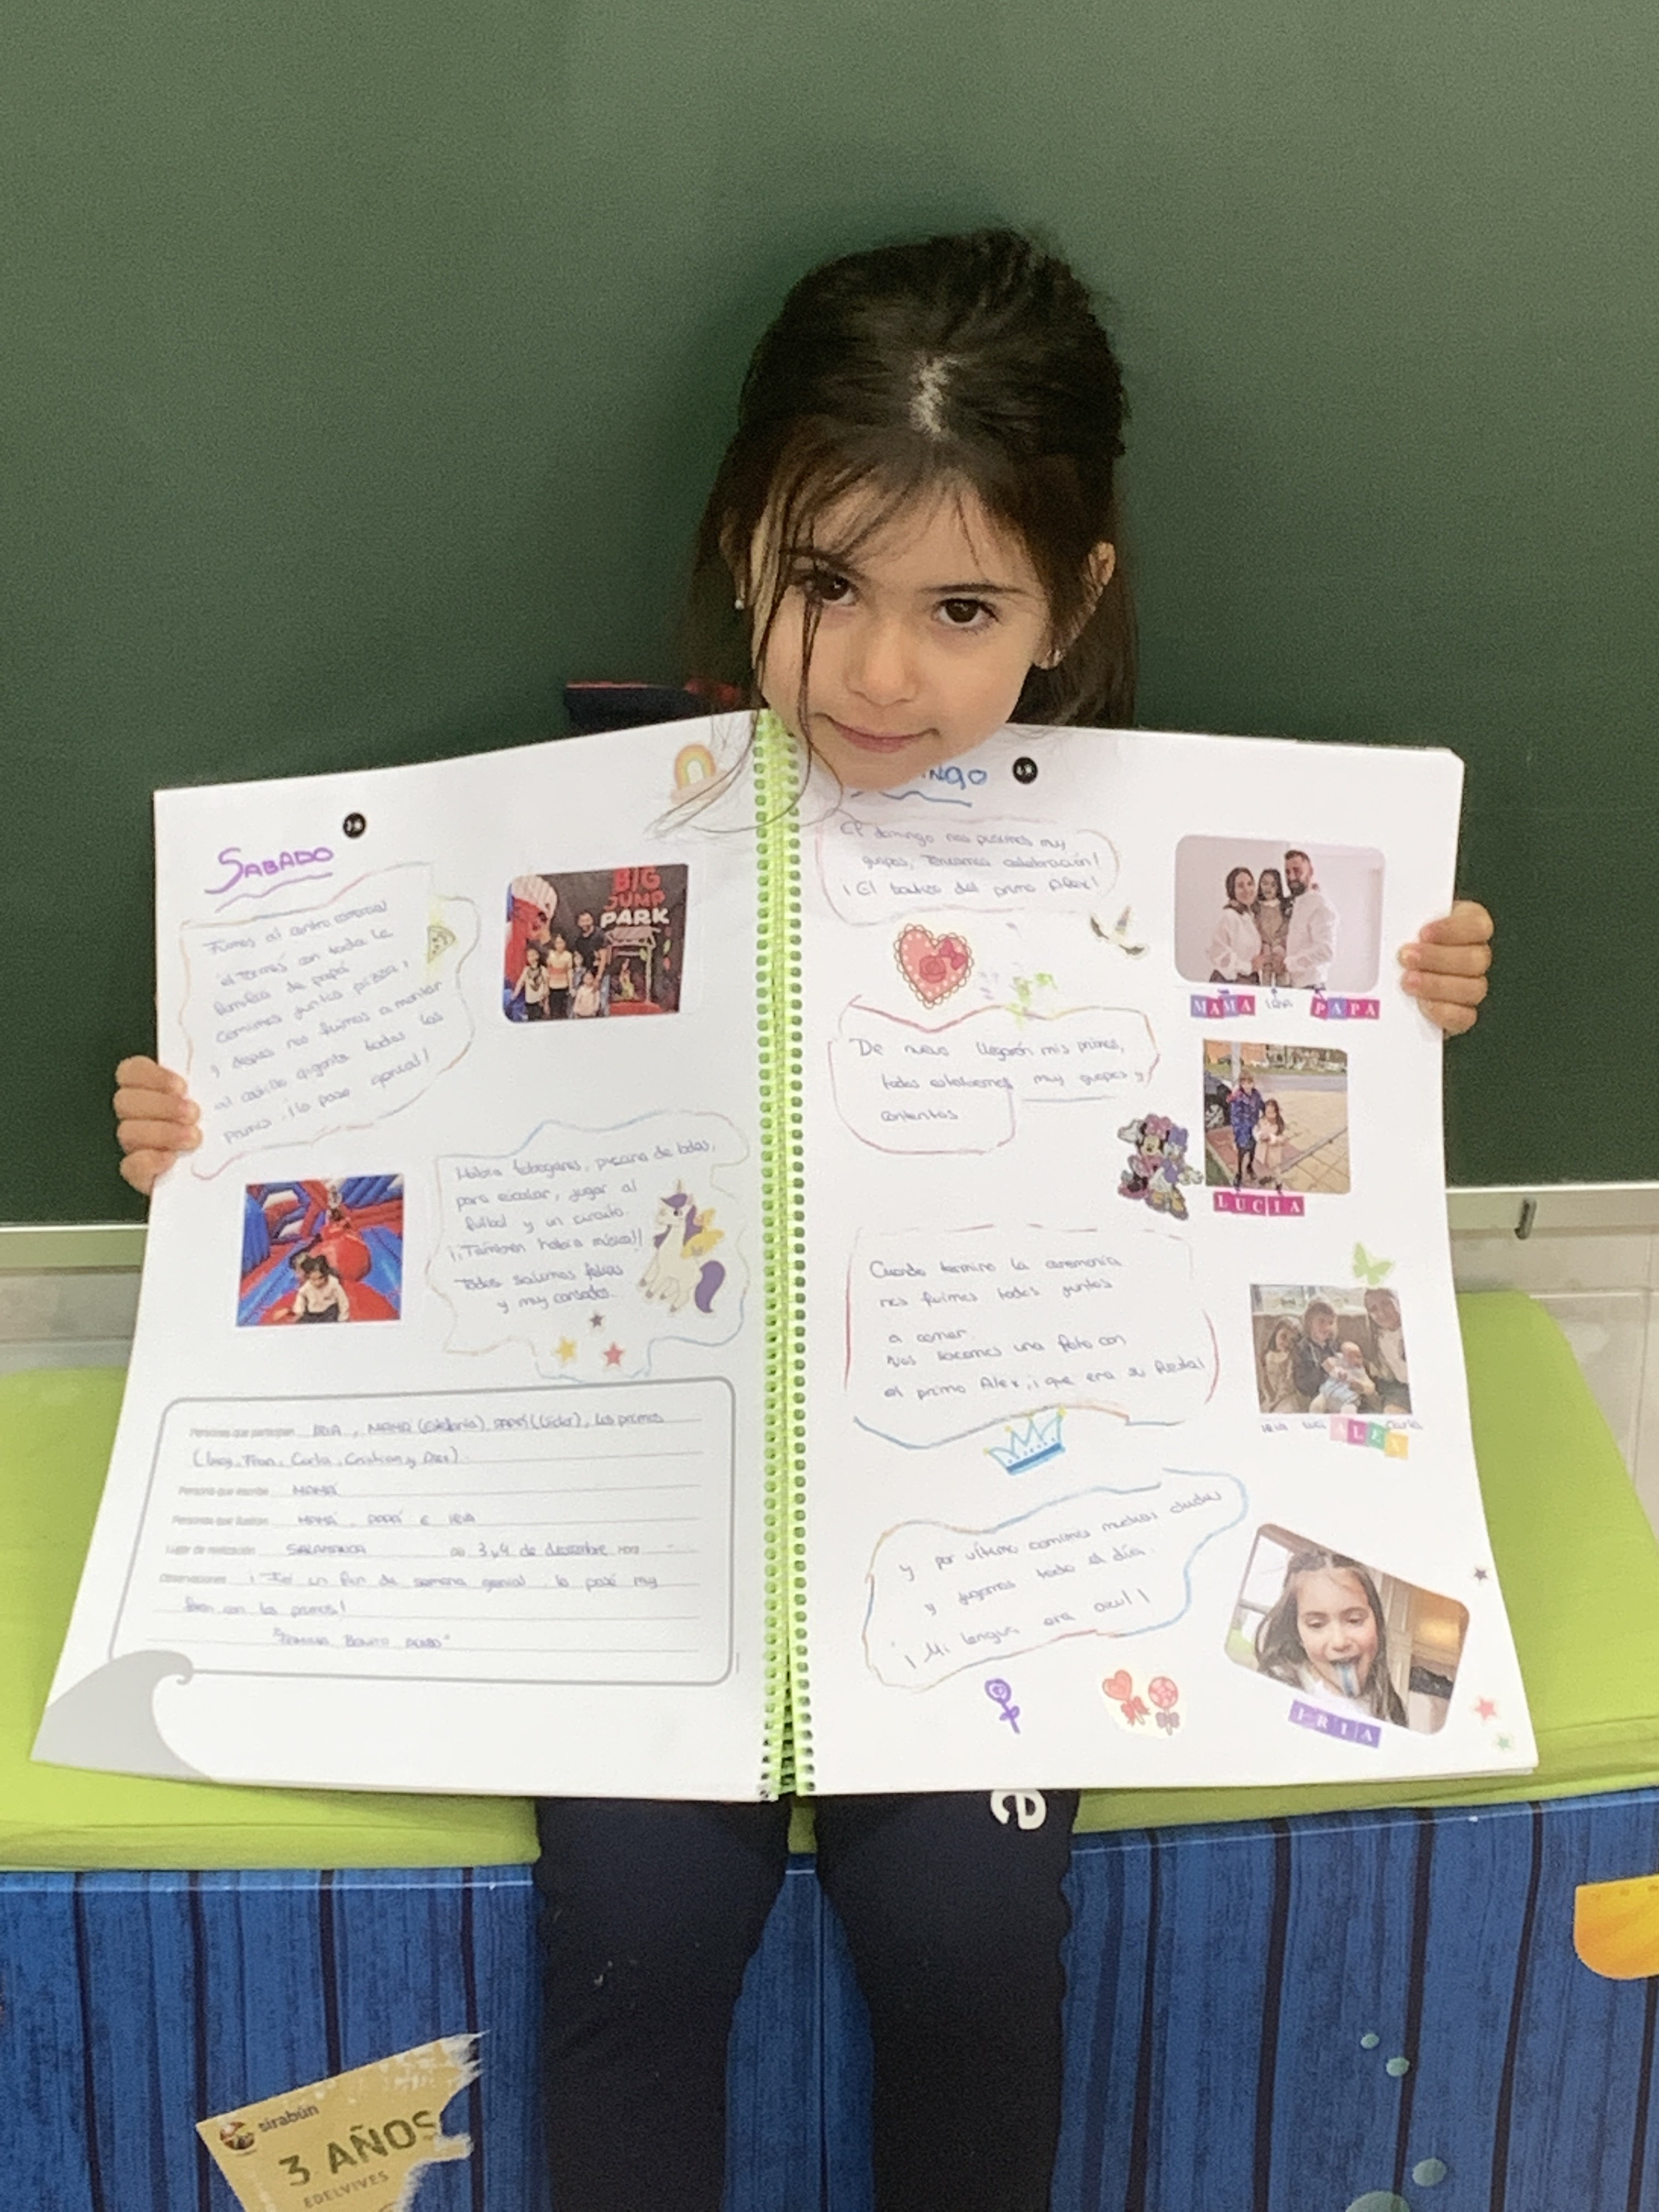 SABADO
Fuimos al centro comercial
"el Tormes" con toda la
familia de papá
Comimos juntos pizza,
y despues nos fuimos a montar
al castillo gigante todos los
primos. ¡Lo pase genial!
BIG
JUMP
PARK
Había toboganes, piscina de bolas,
para escalar, jugar al
futbol y un circuito.
¡¡También había música!!
Todos salimos felices
y muy cansados.
Personas que participan IRIA, MAMÁ (Estefanía), PAPÁ (Victor), los primos
Fran, Carla, Cristian y Alex).
Persona que escribe MAMÁ
Personas que ilustran MAMÁ, PAPÁ E IRIA
Lugar de realización SALAMANCA 3 y 4 de diciembre
Observaciones ¡Fué un fin de semana genial, lo pasé muy
bien con los primos!
"FAMILIA BENITO
NGO
El domingo nos pusimos muy
guapos, Teníamos celebración!
¡El bautizo del primo Alex!
MAMA IRIA PAPA
De nuevo llegarón mis primos,
todos estabamos muy guapos y
contentos
LUCIA
Cuando termino la ceremonia
nos fuimos todos juntos
a comer.
Nos sacamos una foto con
el primo Alex, ¡que era su fiesta!
IRIA LUCI ALEX Carla
y por último comimos muchas chuches
y jugamos todo el día.
¡Mi lengua era azul!
IRIA
e
sirabún
3 AÑOS
EDELVIVES